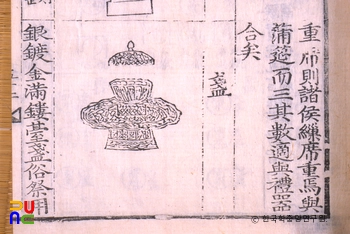 重席則諸侯繅席重焉與
蒲筵而三其數適與禮器
合矣
盞
銀鍍金滿鏤䑓盞俗祭用
RUAC
© 한국학중앙연구원